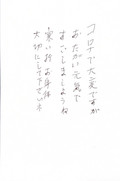 コロナで大変ですが
あたたかい元気で
すごしましょうね
寒い折お身体
大切にして下さいネ